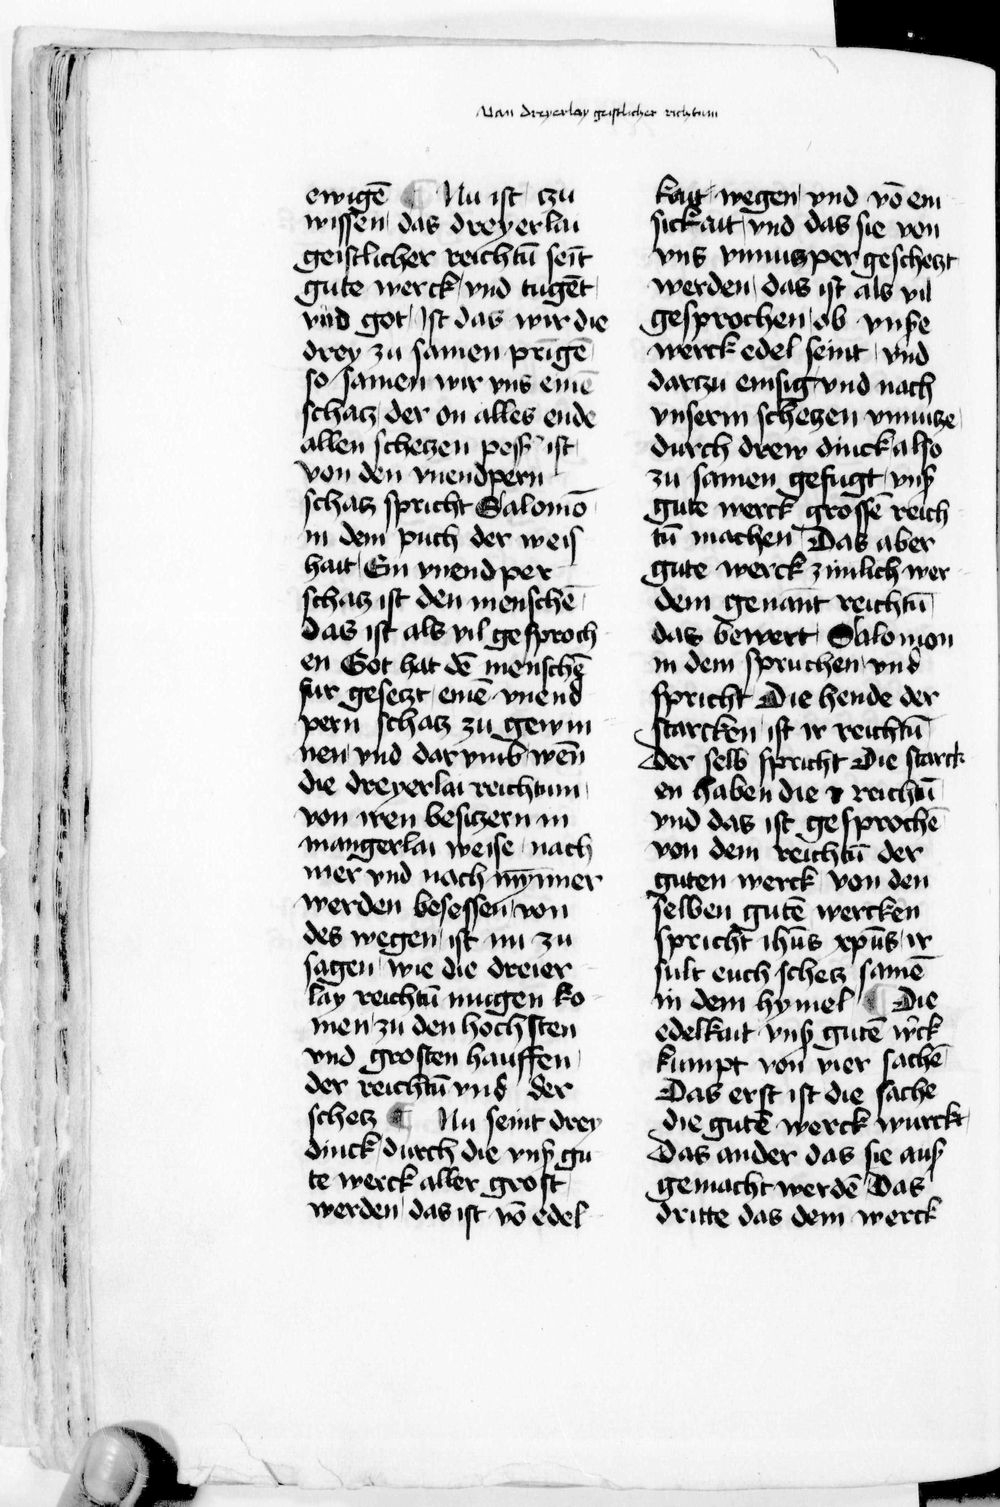 Uan dreyerlay geistlicher richtum
ewigē ¶ Nu ist czu
wissen das dreyerlai
geistlicher reichtū seīt
gute werck vnd tugēt
vnd got Ist das wir die
drey zu samen prīgē
so samen wir vns einē
schacz der on alles ende
allen scheczen pess' ist
von den vnendpern
schacz spricht Salomō
in dem puch der weis
hait Ein vnendper
schacz ist den menschē
das ist als vil gesproch
en Got hat dē menschē
fur gesetzt einē vnend
pern schacz zu gewin
nen vnd darvmb wēn
die dreyerlai reichtum
von iren besiczern in
mangerlai weise nach
mer vnd nach mynner
werden besessen von
des wegen ist nu zu
sagen wie die dreier
lay reichtū mugen ko
men zu den hochsten
vnd grosten hauffen
der reichtū vnd der
schecz ¶ Nu seint drey
dinck durch die vnß gu
te werck aller grost
werden das ist vō edel
kait wegen vnd vō em
sickait vnd das sie von
vns vnnuczper geschetzt
werden das ist als vil
gesprochen ob vnße
werck edel seint vnd
darczu emsig vnd nach
vnserm scheczen vnnutze
durch drew dinck also
zu samen gefugt vnß
gute werck grossē reich
tū machen Das aber
gute werck zimlich wer
dem genant reichtū
das bewert Salomon
in dem spruchen vnd
spricht Die hende der
starcken ist ir reichtū
Der selb spricht Die starck
en haben die reichtū
vnd das ist gesprochē
von dem reichtū der
guten werck von den
selben gutē wercken
spricht ihūs xpūs ir
sult euch schecz samē
in dem hymel ¶ Die
edelkait vnß gutē w'ck
kumpt von vier sachē
Das erst ist die sache
die gutē werck wurckt
Das ander das sie auß
gemacht werdē Das
dritte das dem werck